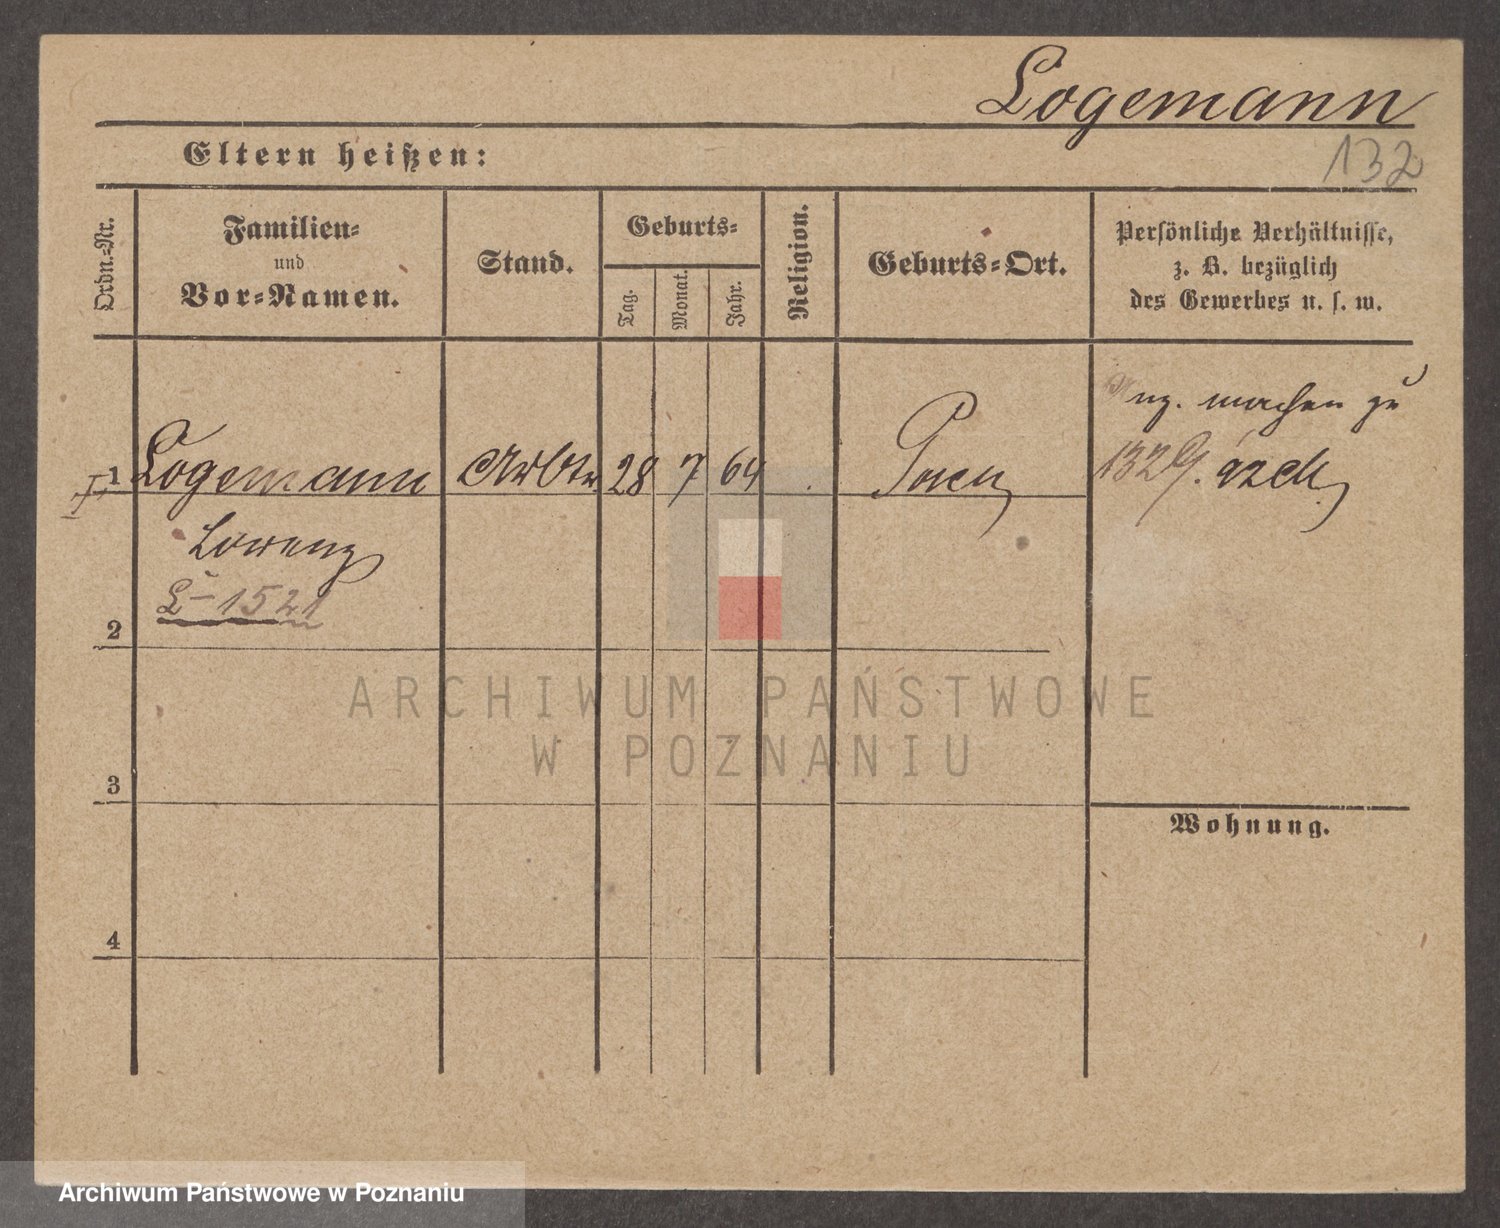 Logemann
132
Eltern heißen:
Ordn.-Nr.
Familien-
und
Vor-Namen.
Stand.
Geburts-
Tag.
Monat.
Jahr.
Religion.
Geburts-Ort.
Persönliche Verhältnisse,
z. B. bezüglich
des Gewerbes u. s. w.
1
Logemann
Arbtr
28
7
64
Posen
machen zu
132
Lorenz
L-1521
2
3
4
Wohnung.
ARCHIWUM PAŃSTWOWE
W POZNANIU
Archiwum Państwowe w Poznaniu